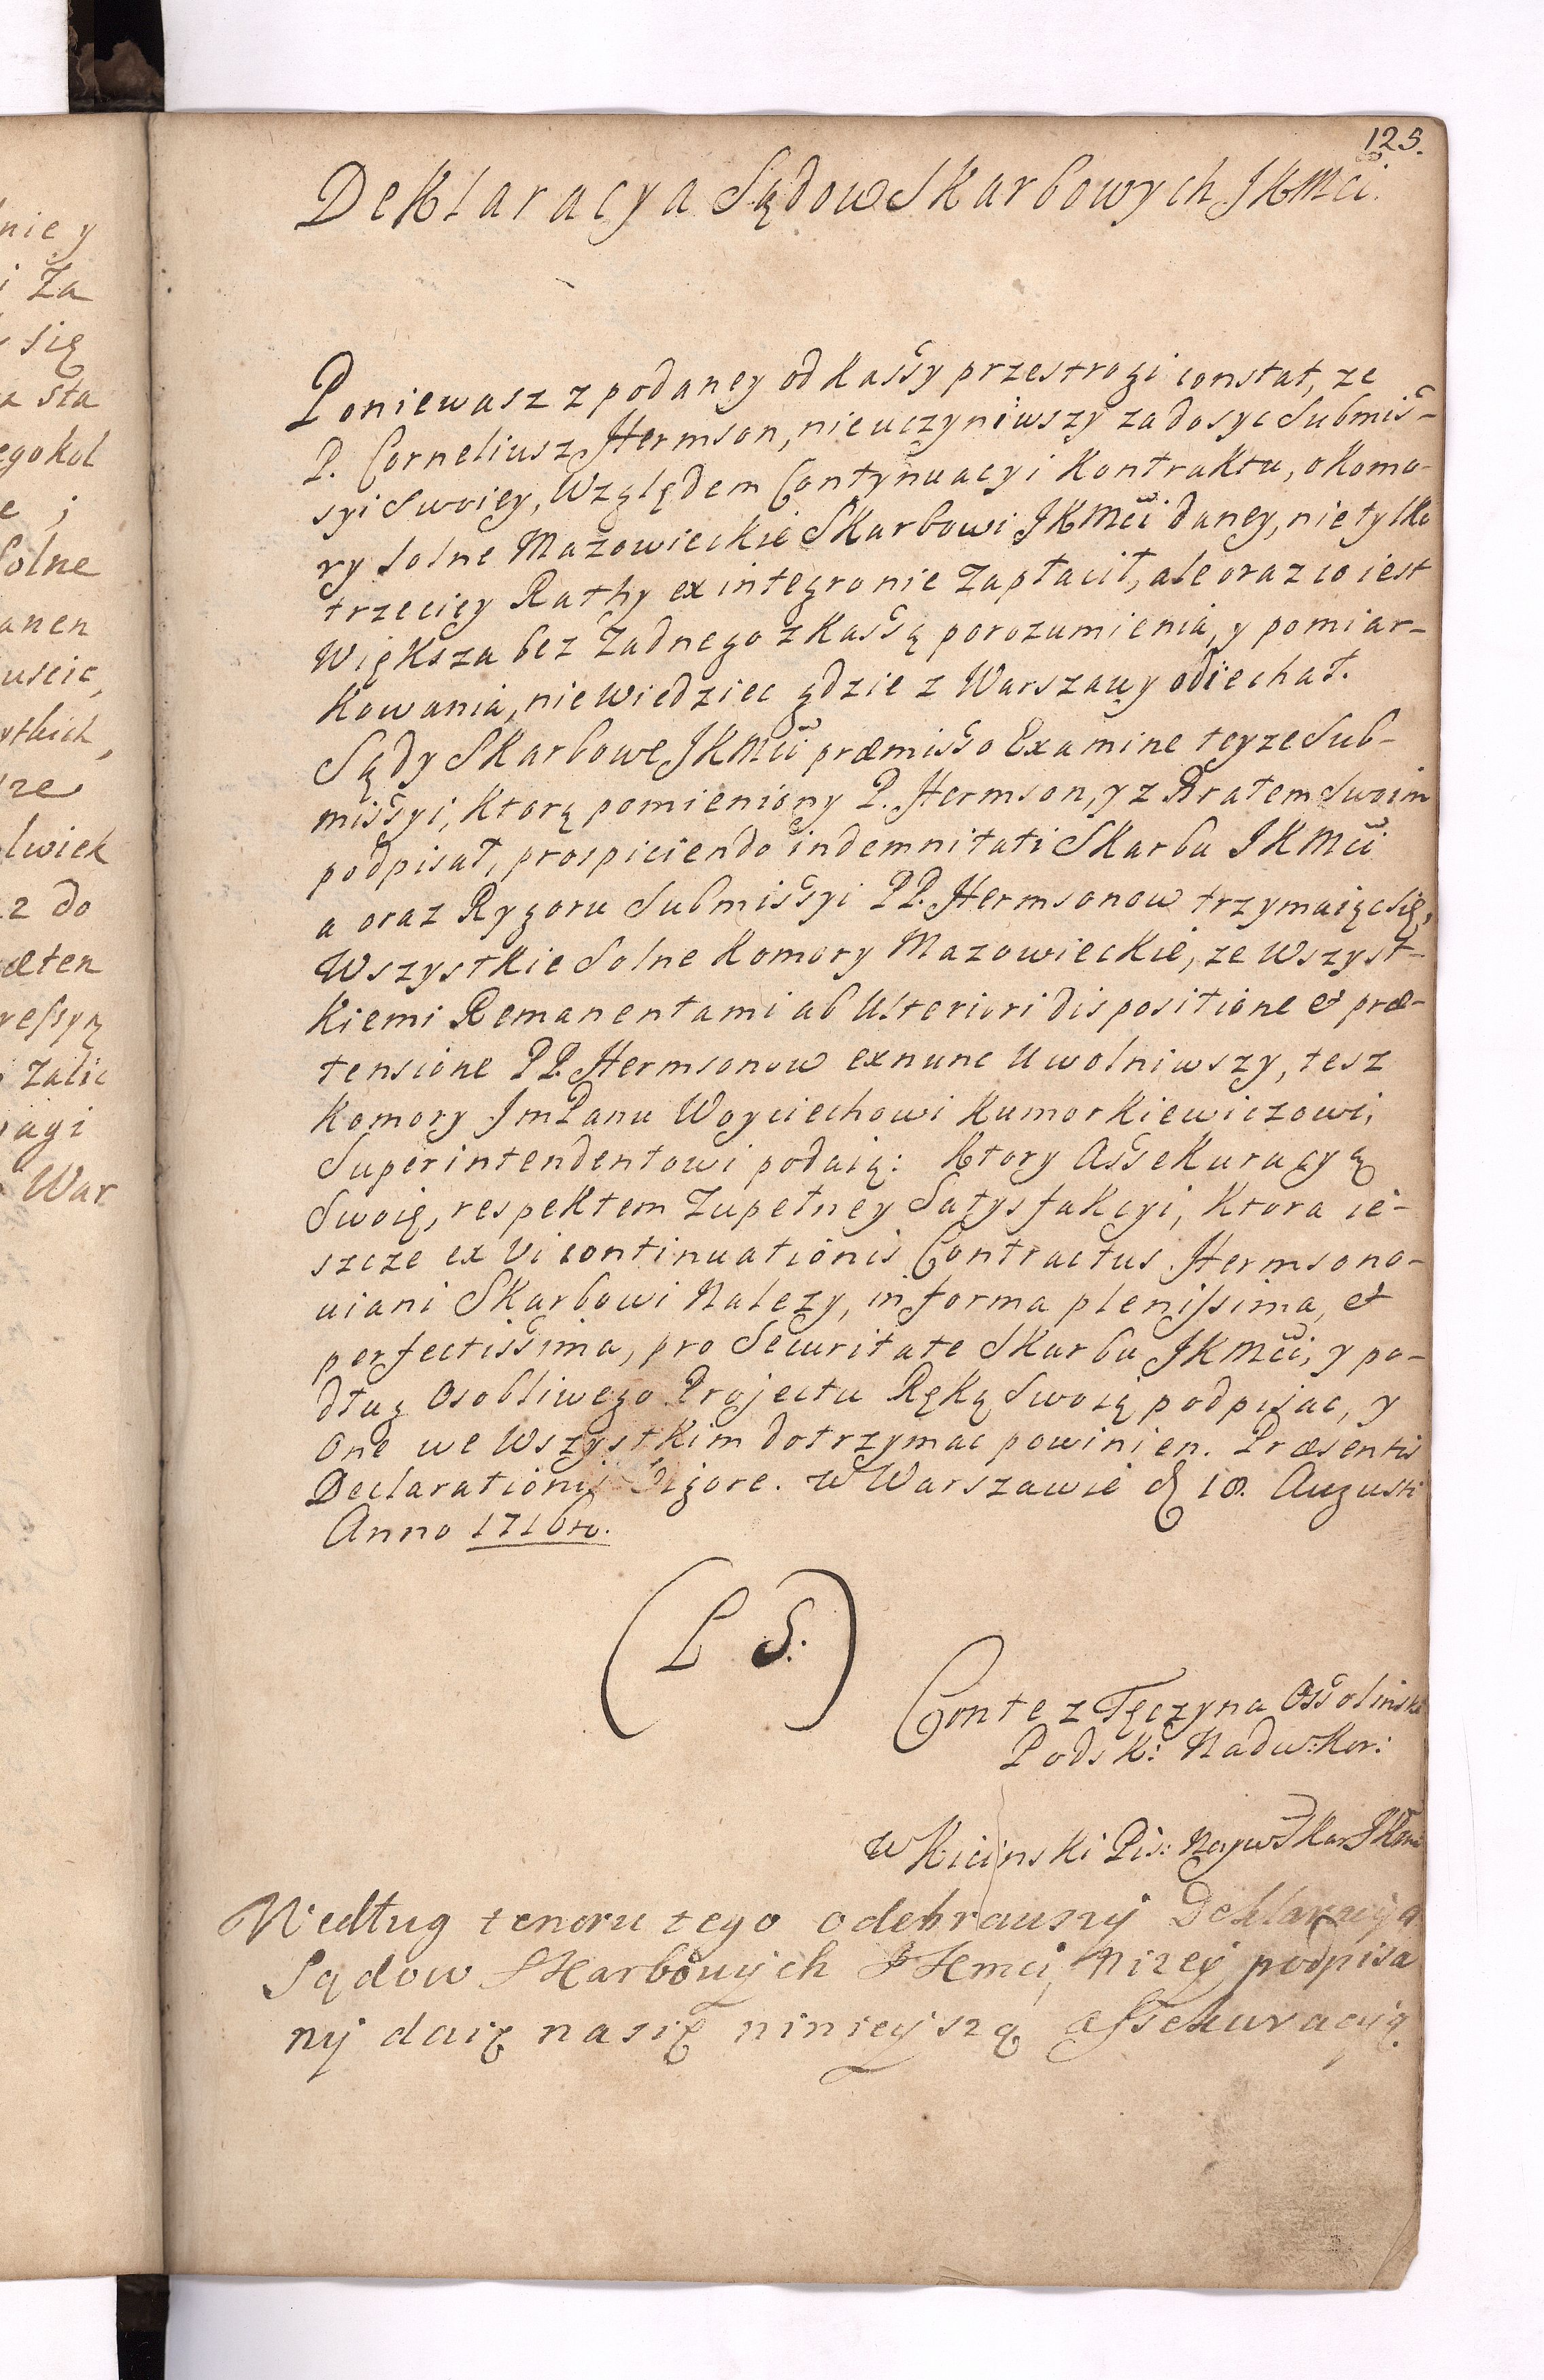 125.
Deklaracya Sądow Skarbowych JKMci.
Poniewasz z podaney od Kassy przestrogi constat, ze
P. Corneliusz Hermson, nieuczyniwszy zadosyc Submis-
syi Swoiey, Względem Contynuacyi Kontraktu, o Komo-
ry Solne Mazowieckie Skarbowi JKMci daney, nie tylko
trzeciey Rathy ex integro nie Zapłacił, ale oraz co iest
Większa bez Zadnego z Kassą porozumienia, y pomiar-
Kowania, niewiedziec gdzie z Warszawy odiechał.
Sądy Skarbowe JKMci præmisso Examine teyze Sub-
missyi, Ktorą pomieniony P. Hermson, y z Bratem Swoim
podpisał, prospiciendo indemnitati Skarbu JKMci
a oraz Rygoru Submissyi PP. Hermsonow trzymaiąc się,
Wszystkie Solne Komory Mazowieckie, ze Wszyst-
Kiemi Remanentami ab Ulteriori dispositione et præ-
tensione PP. Hermsonow exnunc Uwolniwszy, tesz
Komory JmPanu Woyciechowi Kumorkiewiczowi,
Superintendentowi podaią: Ktory Assekuracyą
Swoię, respektem Zupełney Satysfakcyi, Ktora ie-
szcze ex Vi continuationis Contractus Hermsono-
uiani Skarbowi Nalezy, in forma plenissima, et
perfectissima, pro Securitate Skarbu JKMci, y po-
dług Osobliwego Projectu Ręką Swoią podpisac, y
One we Wszystkim dotrzymac powinien. Præsentis
Declarationis Vigore. w Warszawie d 18. Augusti
Anno 1716to.
(L S:)
Conte z Tęczyna Ossolinski
Podsk: Nadw: Kor:
w Kicinski Pis: Nayw Skar JKmci
Według tenoru tego odebrauszy Deklaracyą
Sądow Skarbowych JKmci, Nizey podpisa
ny daię nasię ninieyszą assekuracyą.
nie y
i Za
się
a sta
egokol
e ;
Solne
anen
uscic,
ystkich,
ze
lwiek
z do
æten
ressyą
Zalic
iagi
War